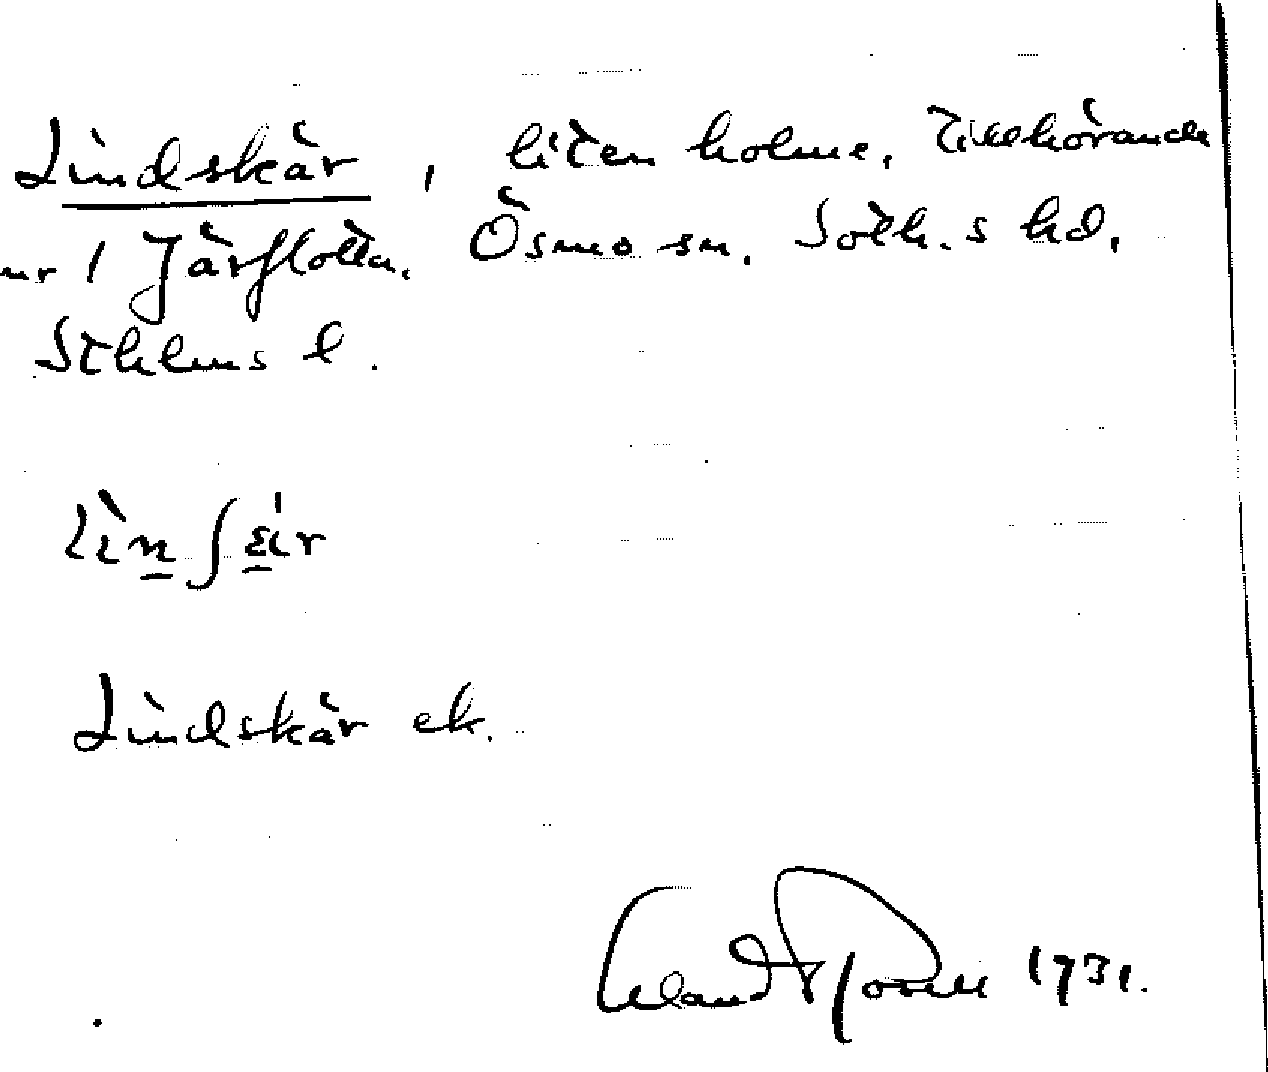 Lindskär, liten holme, tillhörande
nr 1 Järflotta, Ösmo sn, Soth.s hd,
Sthlms l.
Lindskär ek.
1931.